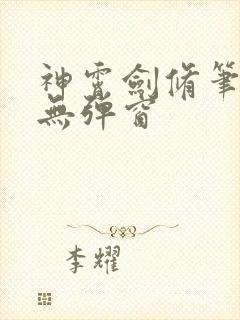 神霄劍脩筆
無彈窗
李耀